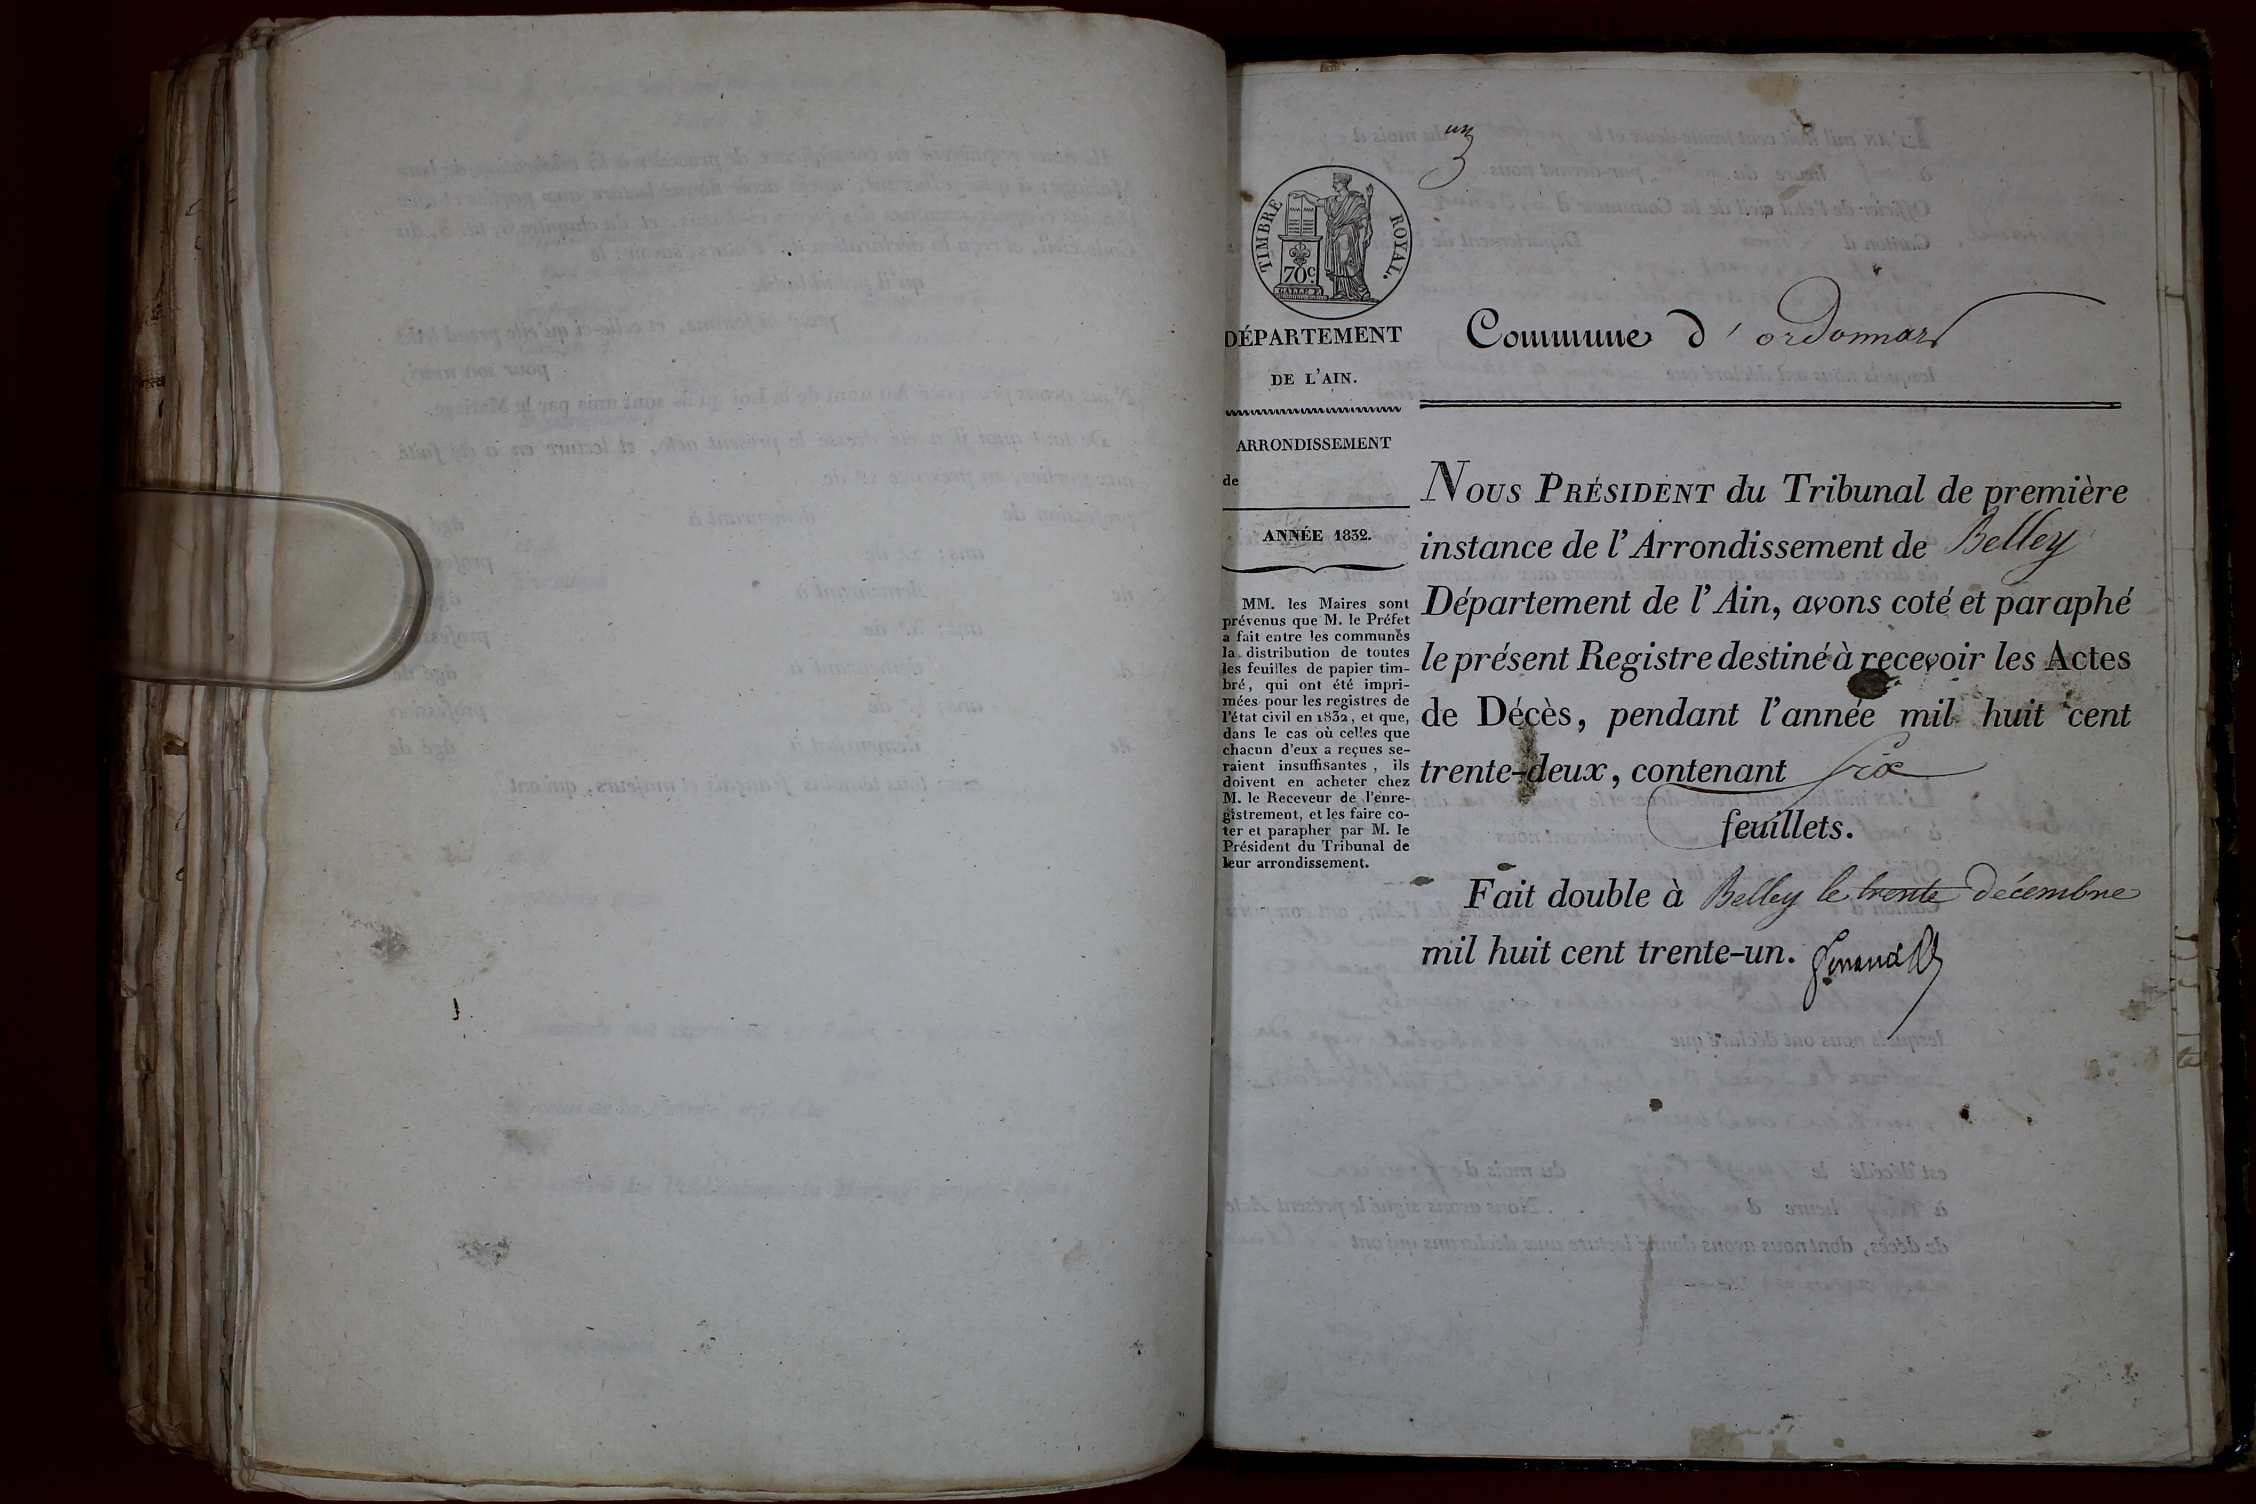 un
TIMBRE ROYAL.
70c.
DÉPARTEMENT
DE L'AIN.
ARRONDISSEMENT
de
ANNÉE 1832.
MM. les Maires sont
prévenus que M. le Préfet
a fait entre les communes
la distribution de toutes
les feuilles de papier tim-
bré, qui ont été impri-
mées pour les registres de
l'état civil en 1832, et que,
dans le cas où celles que
chacun d'eux a reçues se-
raient insuffisantes, ils
doivent en acheter chez
M. le Receveur de l'enre-
gistrement, et les faire co-
ter et parapher par M. le
Président du Tribunal de
leur arrondissement.
Commune d'ordonnas
NOUS PRÉSIDENT du Tribunal de première
instance de l'Arrondissement de Belley
Département de l'Ain, avons coté et paraphé
le présent Registre destiné à recevoir les Actes
de Décès, pendant l'année mil huit cent
trente-deux, contenant six
feuillets.
Fait double à Belley le trente décembre
mil huit cent trente-un.